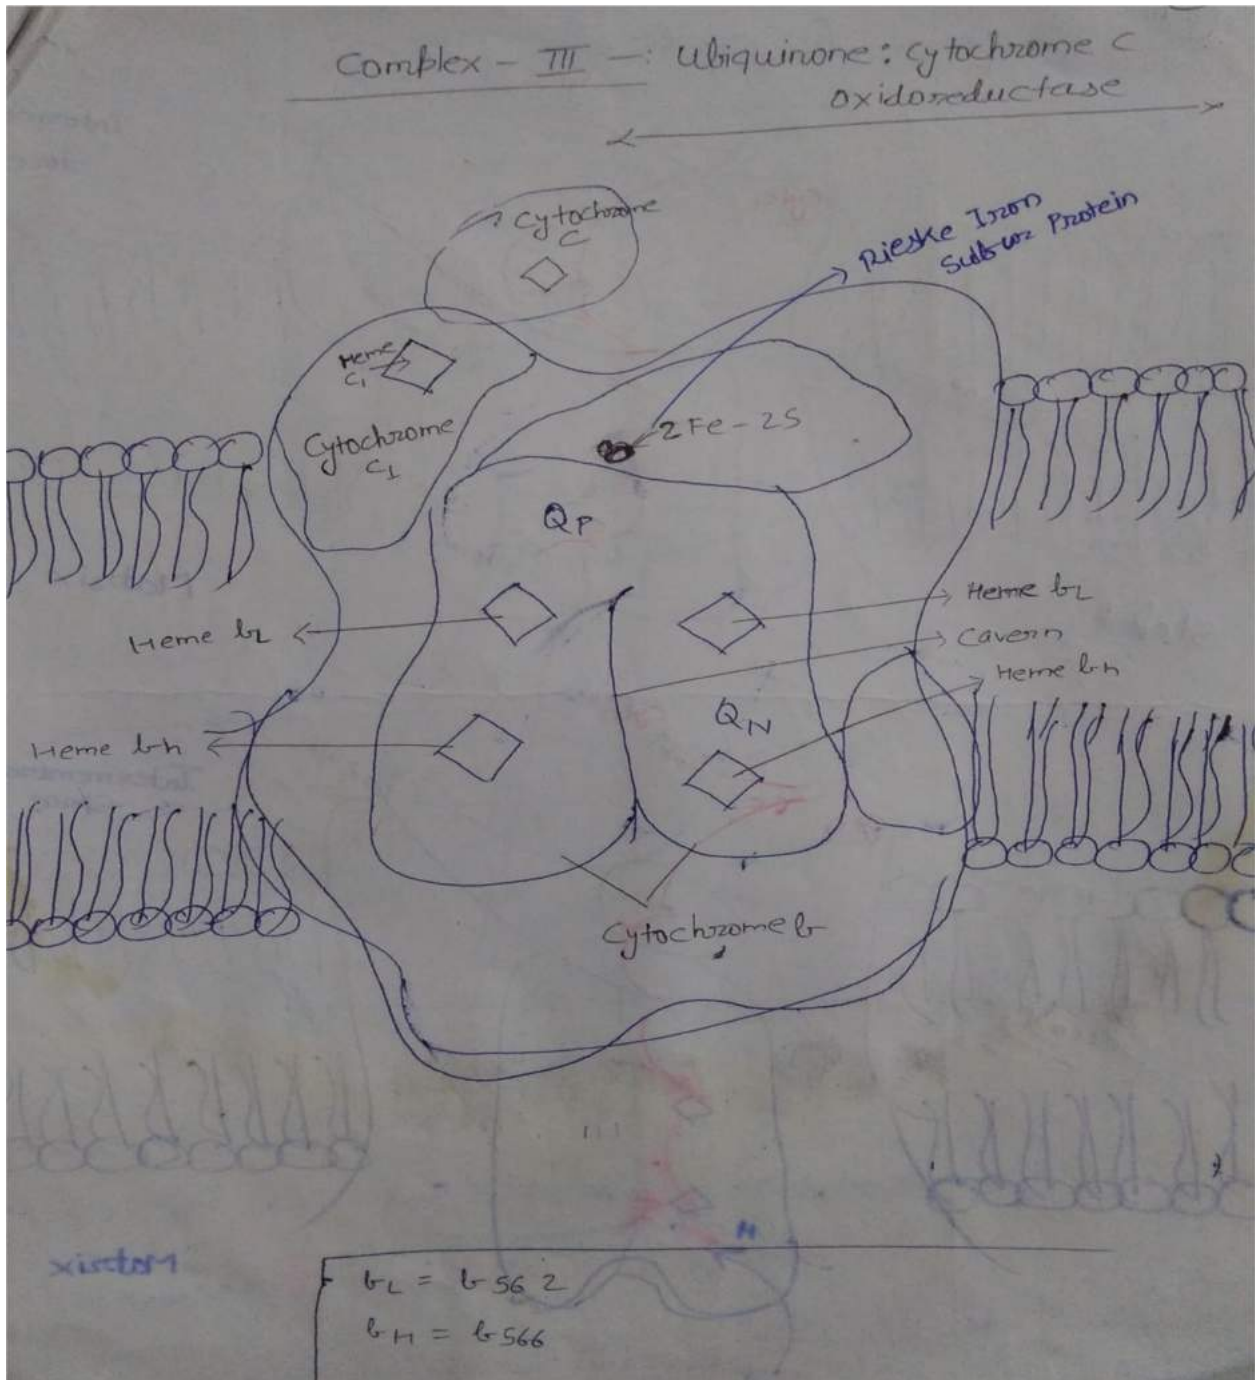 Complex - III -: Ubiquinone: Cytochrome C
oxidoreductase
Cytochrome
C
Rieske Iron
Sulfur Protein
Heme
C1
Cytochrome
C1
2Fe-2S
QP
Heme bL
Heme bL
Cavern
Heme bh
QN
Heme bh
Cytochrome b
bL = b562
bH = b566